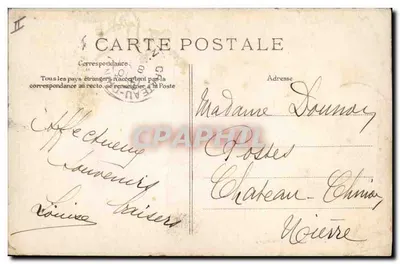 II
CARTE POSTALE
Correspondance
Tous les pays étrangers n'acceptent pas la
correspondance au recto, se renseigner à la Poste
Affectueux
Souvenirs
baisers
Louisa
Adresse
Madame
Postes
Chateau-Chinon
Nièvre
CPARAMA